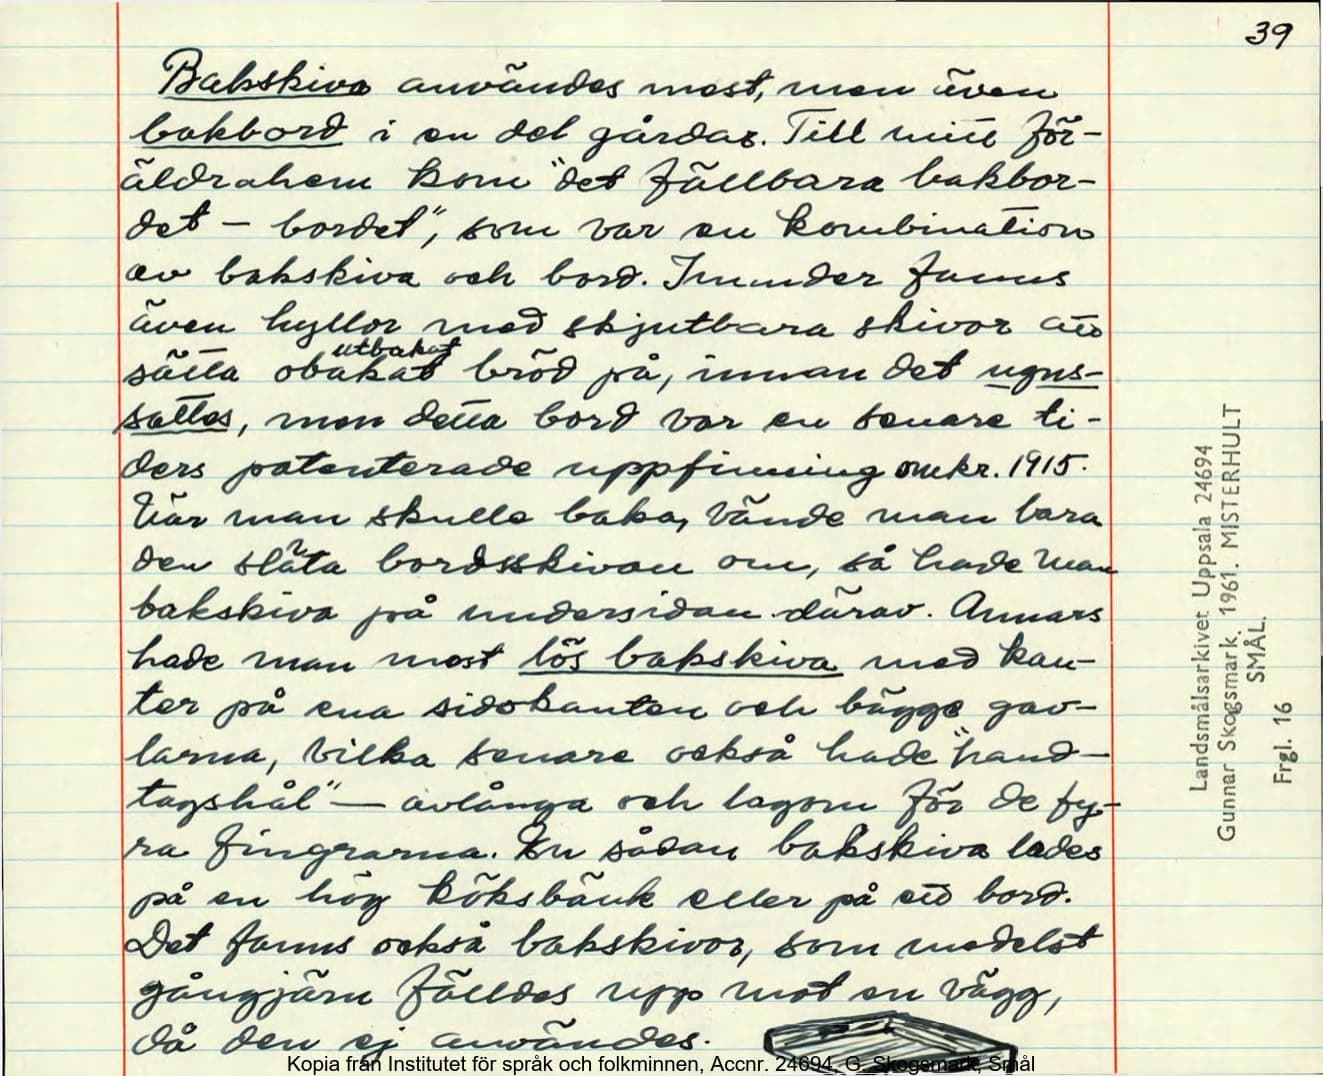 39
Bakskiva användes mest, men även
bakbord i en del gårdar. Till mitt för-
äldrahem kom "det fällbara bakbor-
det - bordet", som var en kombination
av bakskiva och bord. Inunder fanns
även hyllor med skjutbara skivor att
utbakat
sätta obakat bröd på, innan det ugns-
sattes, men detta bord var en senare ti-
ders patenterade uppfinning omkr. 1915.
När man skulle baka, vände man bara
den släta bordsskivan om, så hade man
bakskiva på undersidan därav. Annars
hade man mest lös bakskiva med kan-
ter på ena sidokanten och bägge gav-
larna, vilka senare också hade "hand-
tagshål" — avlånga och lagom för de fy-
ra fingrarna. En sådan bakskiva lades
på en hög köksbänk eller på ett bord.
Det fanns också bakskivor, som medelst
gångjärn fälldes upp mot en vägg,
då den ej användes.
Landsmålsarkivet Uppsala 24694
Gunnar Skogsmark. 1961. MISTERHULT
SMÅL.
Frgl. 16
Kopia från Institutet för språk och folkminnen, Accnr. 24694, G. Skogsmark, Smål